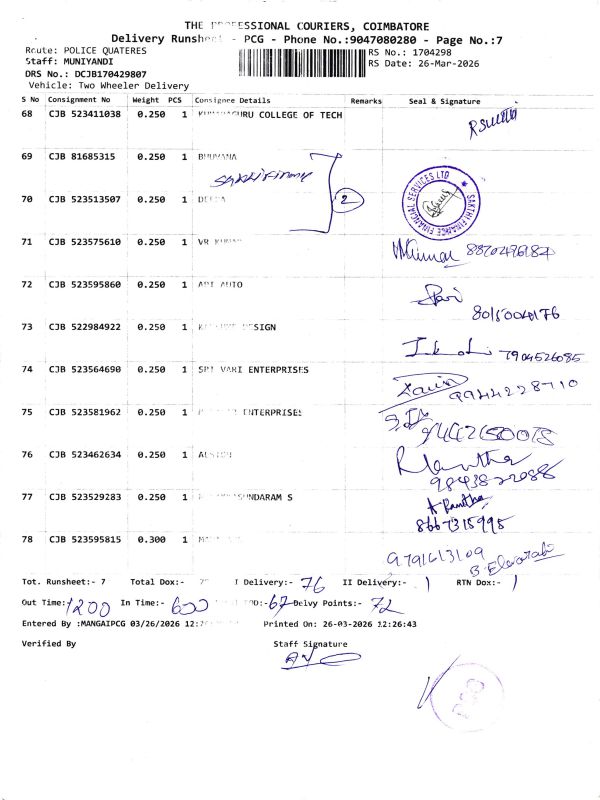 THE PROFESSIONAL COURIERS, COIMBATORE
Delivery Runsheet - PCG - Phone No.:9047080280 - Page No.:7
Route: POLICE QUATERES
RS No.: 1704298
Staff: MUNIYANDI
RS Date: 26-Mar-2026
DRS No.: DCJB170429807
Vehicle: Two Wheeler Delivery
S No Consignment No Weight PCS Consignee Details Remarks Seal & Signature
68 CJB 523411038 0.250 1 KUMARAGURU COLLEGE OF TECH
69 CJB 81685315 0.250 1 BHUVANA
Sakthi Finance
SAKTHI FINANCE FINANCIAL SERVICES LTD
70 CJB 523513507 0.250 1 DEEPA 2
71 CJB 523575610 0.250 1 VR KUMAR
8870496187
72 CJB 523595860 0.250 1 ADI AUTO
73 CJB 522984922 0.250 1 DESIGN
7904526085
74 CJB 523564690 0.250 1 SRI VARI ENTERPRISES
9944228710
75 CJB 523581962 0.250 1 ENTERPRISES
76 CJB 523462634 0.250 1
9843822088
77 CJB 523529283 0.250 1 SUNDARAM S
8667315995
78 CJB 523595815 0.300 1
9791613109
Tot. Runsheet:- 7 Total Dox:- I Delivery:- 76 II Delivery:- 1 RTN Dox:- 1
Out Time:- 1200 In Time:- 600 POD:- 67 Delvy Points:- 72
Entered By :MANGAIPCG 03/26/2026 Printed On: 26-03-2026 12:26:43
Verified By Staff Signature